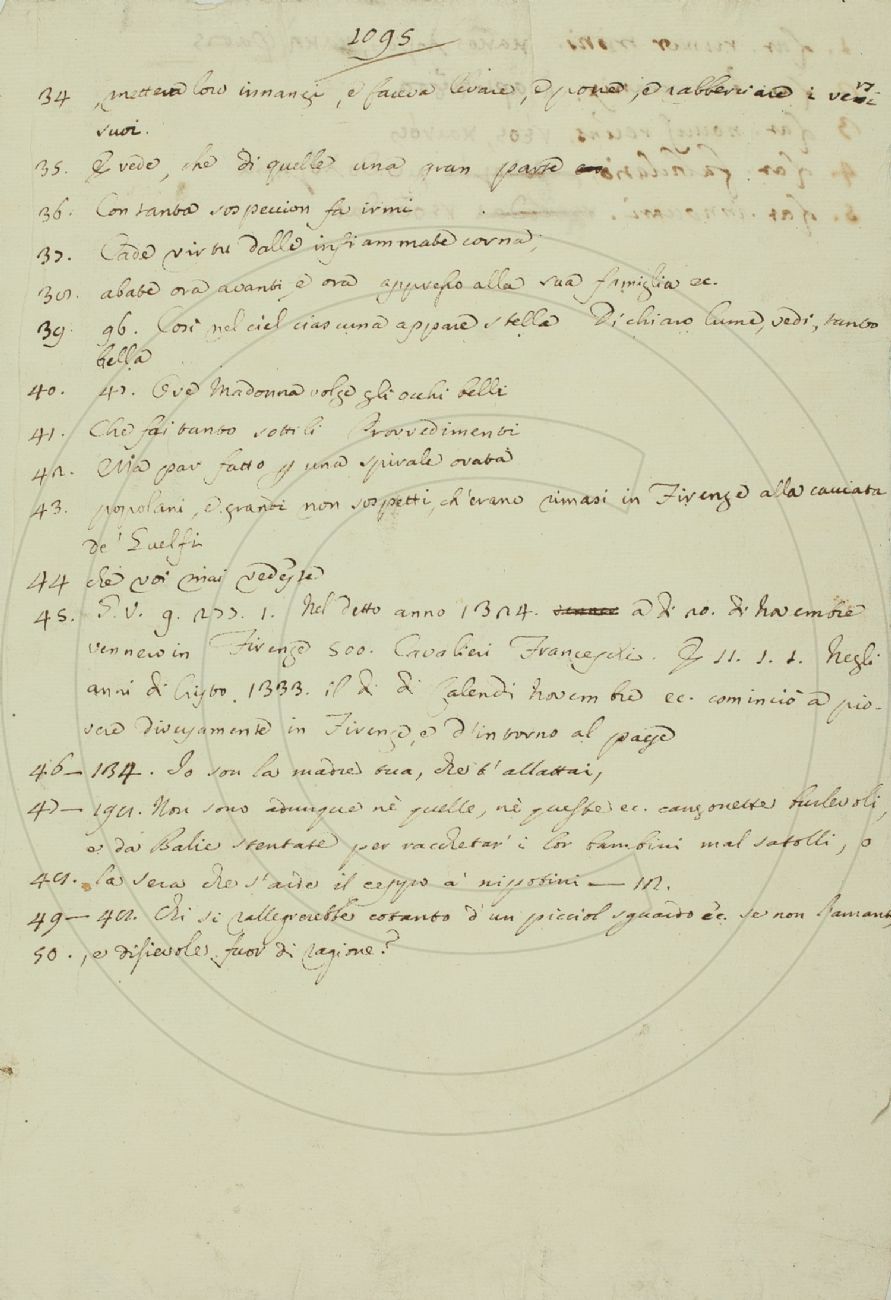 1095
34 , metteva loro innanzi, e faceva levare, e porre, e rabberciare i versi
suoi.
35. E vede, che di quelle una gran parte
36. Con tanta sospeccion fa irmi
37. Cade virtù dalle infiammate corna;
38. abate ora avanti e ora appresso alla sua famiglia ec.
39. 96. Così nel ciel ciascuna appare stella Di chiaro lume, vedi, tanto
bella
40. 47. Ove Madonna volge gli occhi belli
41. Che fai tanto sottili Provvedimenti
42. Ma par fatto p una spirale ovata
43. popolani, e grandi non sospetti, ch'erano rimasi in Firenze alla cacciata
de' Guelfi
44 che voi mai vedeste
45. G. V. 9. 277. 1. Nel detto anno 1324. a dì 20. di Novembre
vennero in Firenze 500. Cavalieri Franceschi. E 11. 1. 1. Negli
anni di Cristo 1333. il dì di Calendi Novembre ec. cominciò a pio-
vere diversamente in Firenze, e d'intorno al paese
46 — 134. Io son la madre tua, che t'allattai,
47 — 198. Non sono adunque nè quelle, nè queste ec. canzonette burlevoli,
e da Balie stentate per racchetar' i lor bambini mal satolli, o
48. la sera che s'arde il ceppo a' nipotini — 112.
49 — 48. Chi si rallegrerebbe cotanto d'un picciol sguardo ec. se non l'amante,
50. , e disievole fuor di ragione?